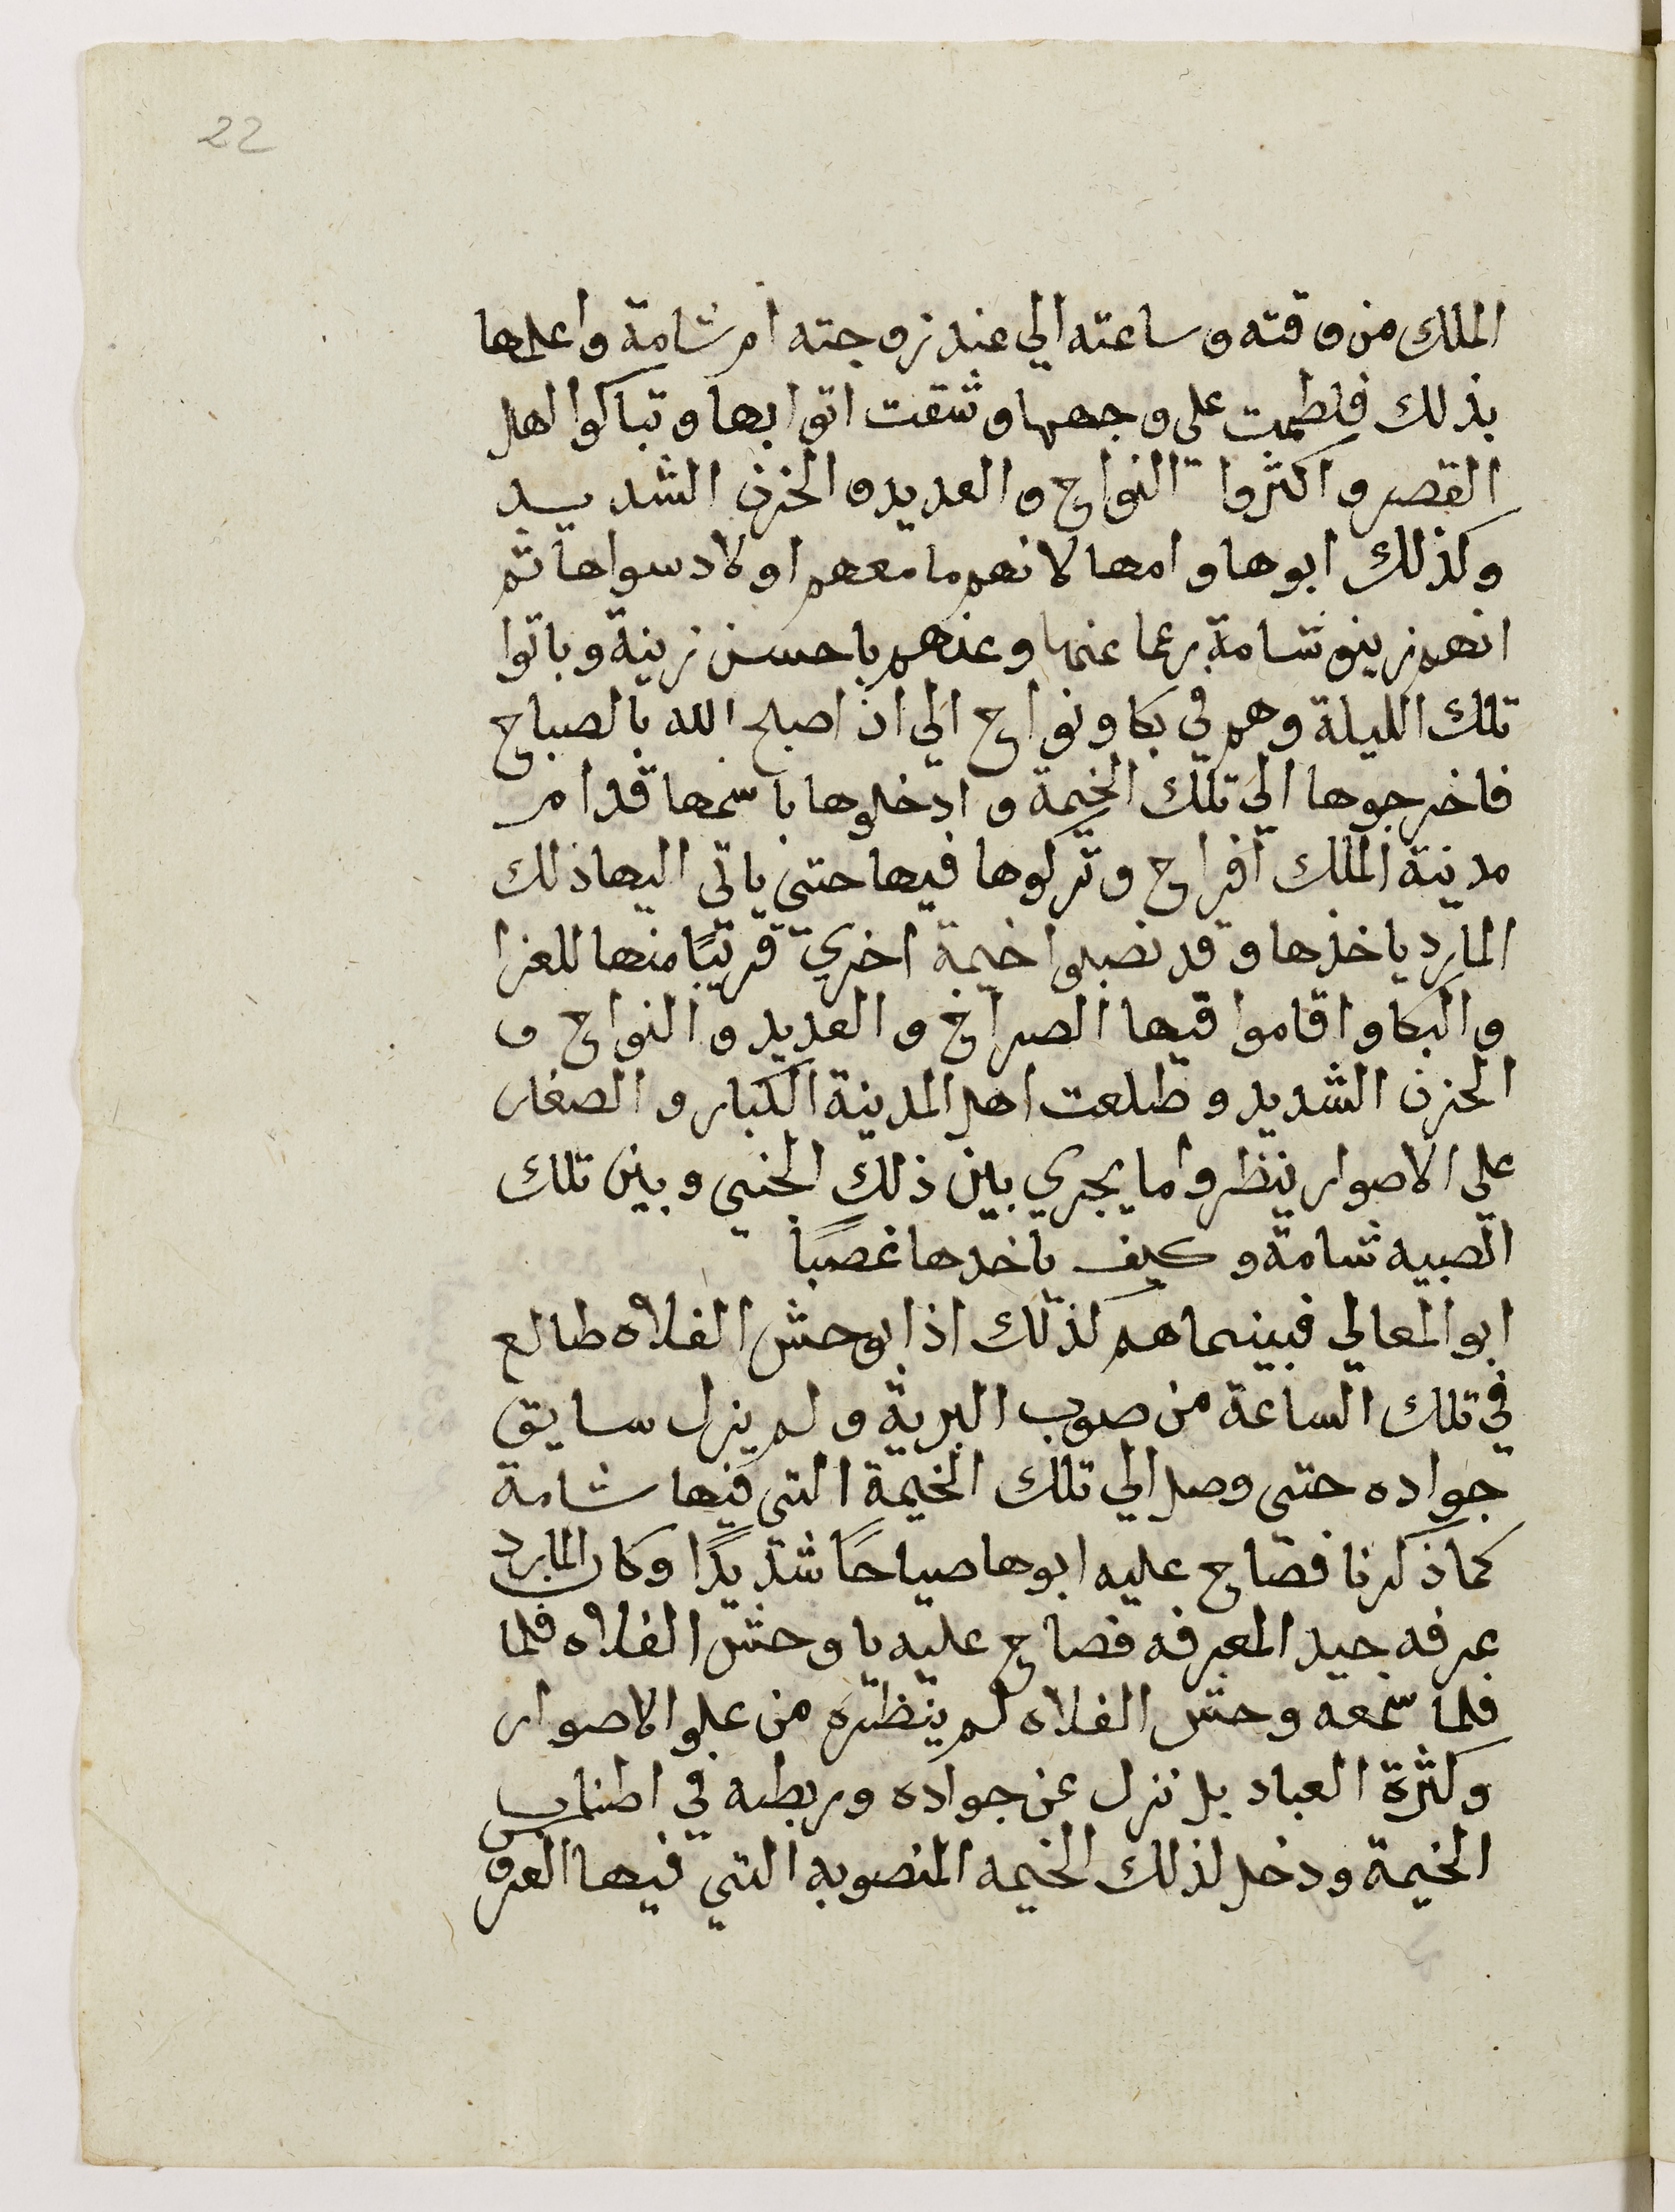 22
الملك من وقته وساعته الي عند زوجته ام شامة واعلمها
بذلك فلطمت علي وجهها وشقت اتوابها وتباكوا اهل
القصر واكثروا النواح والعديد والحزن الشديد
وكذلك ابوها وامها لانهم ما معهم اولاد سواها ثم
انهم زينو شامة رغما عنها وعنهم باحسن زينة وباتوا
تلك الليلة وهم في بكا ونواح الي ان اصبح الله بالصباح
فاخرجوها الي تلك الخيمة وادخلوها باسمها قدام
مدينة الملك افراح وتركوها فيها حتي ياتي اليها ذلك
المارد ياخذها وقد نصبوا خيمة اخري قريبًا منها للعزا
والبكا واقاموا فيها الصراخ والعديد والنواح و
الحزن الشديد وطلعت اهل المدينة الكبار والصغار
علي الاصوار ينظروا ما يجري بين ذلك الجني وبين تلك
الصبيه شامة وكيف ياخدها غصبًا
ابو المعالي فبينما هم كذلك اذا بوحش الفلاه طالع
في تلك الساعة من صوب البرية ولم يزل سايق
جواده حتي وصل الي تلك الخيمة التي فيها شامة
كما ذكرنا فصاح عليه ابوها صياحًا شديدًا وكان المارد
عرفه جيد المعرفه فصاح عليه يا وحش الفلاه فلما
فلما سمعه وحش الفلاه لم ينظره من علو الاصوار
وكثرة العباد بل نزل عن جواده وربطه في اطناب
الخيمة ودخل لذلك الخيمه المنصوبه التي فيها العرو